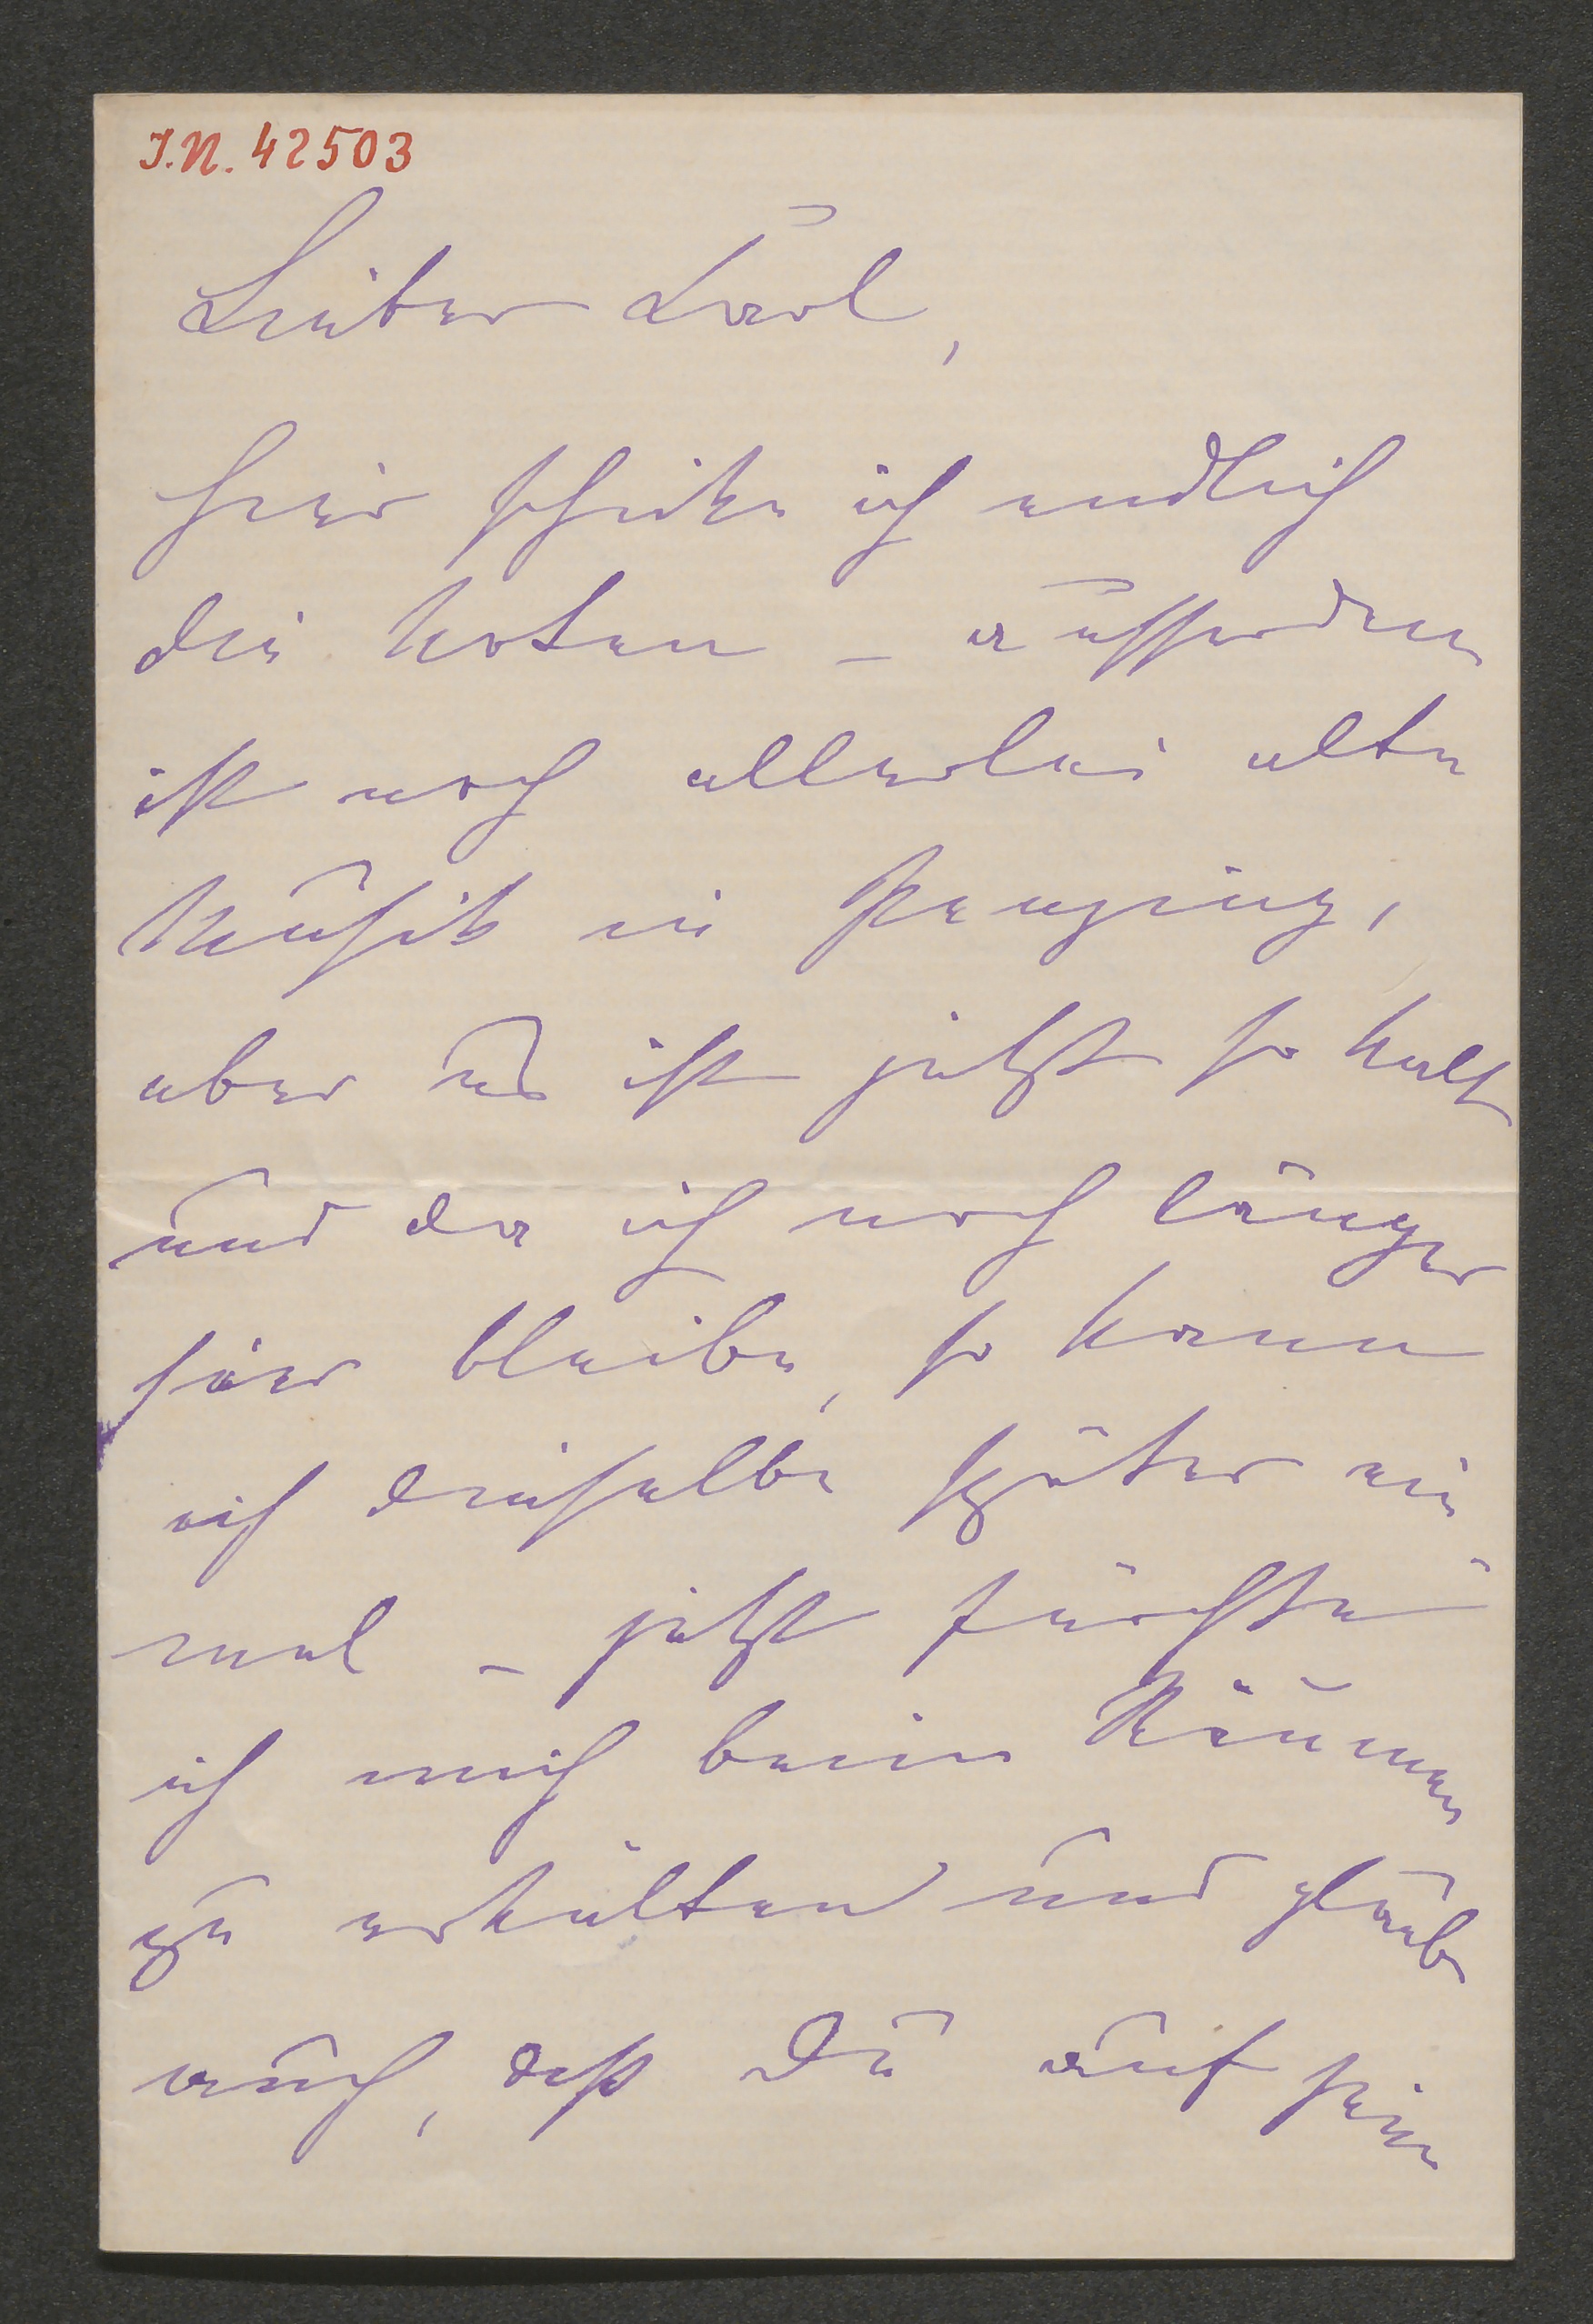 I.N. 42503
Lieber Carl,
hier schike ich endlich
die Noten – ausserdem
ist noch allerlei alte
Musik in Penzing,
aber es ist jetzt so kalt
und da ich noch länger
hier bleibe, so kann
ich dieselbe später ein
mal – jetzt fürchte
ich mich beim Räumen
zu erkälten und glaube
auch, daß Du auf